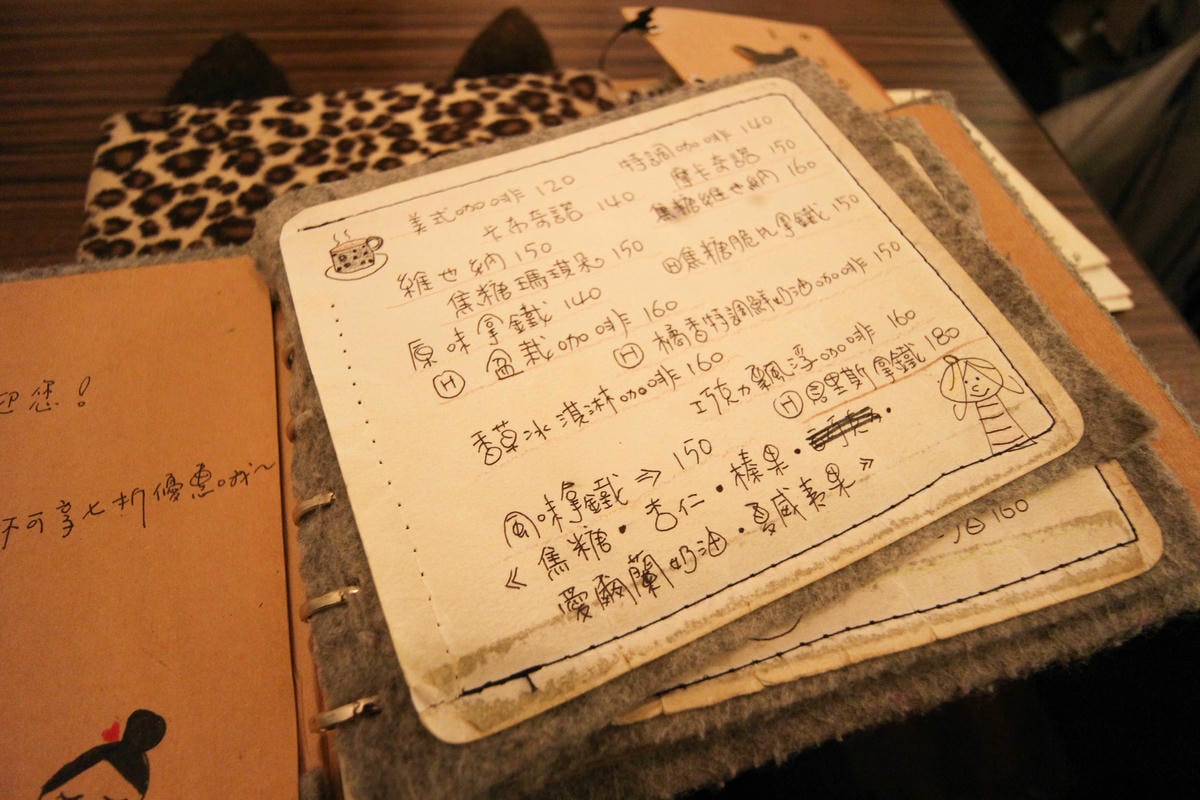 迎您!
不可享七折優惠哦~
美式咖啡 120
特調咖啡 140
卡布奇諾 140
摩卡奇諾 150
維也納 150
焦糖維也納 160
焦糖瑪琪朵 150
Ⓗ焦糖脆片拿鐵 150
原味拿鐵 140
Ⓗ 盆栽咖啡 160
Ⓗ 橘香特調鮮奶油咖啡 150
香草冰淇淋咖啡 160
巧克力飄浮咖啡 160
Ⓗ宮里斯拿鐵 180
風味拿鐵 => 150
《 焦糖・杏仁・榛果・
愛爾蘭奶油・夏威夷果 》
160